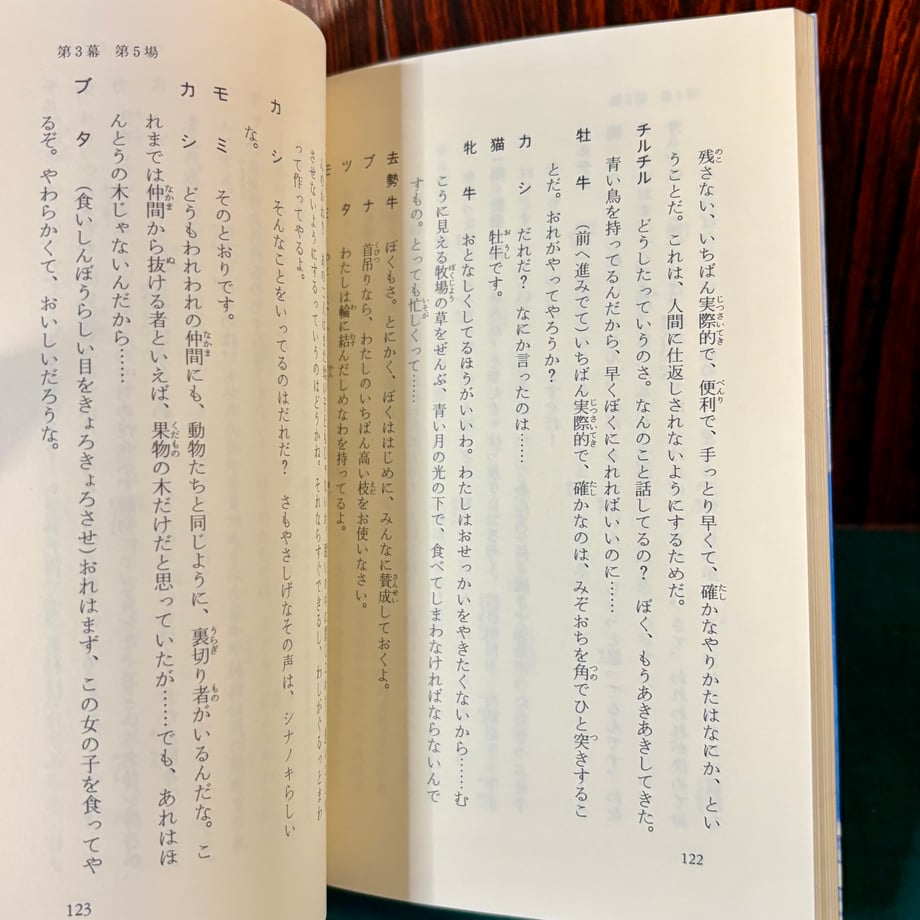 残さない、いちばん実際的で、便利で、手っとり早くて、確かなやりかたはなにか、とい
うことだ。これは、人間に仕返しされないようにするためだ。
チルチル　どうしたっていうのさ。なんのこと話してるの？　ぼく、もうあきあきしてきた。
青い鳥を持ってるんだから、早くぼくにくれればいいのに……
牡牛　（前へ進みでて）いちばん実際的で、確かなのは、みぞおちを角でひと突きするこ
とだ。おれがやってやろうか？
カシ　だれだ？　なにか言ったのは……
猫　牡牛です。
牝牛　おとなしくしてるほうがいいわ。わたしはおせっかいをやきたくないから……む
こうに見える牧場の草をぜんぶ、青い月の光の下で、食べてしまわなければならないんで
すもの。とっても忙しくって……
去勢牛　ぼくもさ。とにかく、ぼくははじめに、みんなに賛成しておくよ。
ブナ　首吊りなら、わたしのいちばん高い枝をお使いなさい。
ツタ　わたしは輪に結んだしめなわを持ってるよ。
122
第3幕　第5場
させないようにするっていうのはどうかね。それならすぐできるし、わしがぐるっとまわ
って作ってやるよ。
カシ　そんなことをいってるのはだれだ？　さもやさしげなその声は、シナノキらしい
な。
モミ　そのとおりです。
カシ　どうもわれわれの仲間にも、動物たちと同じように、裏切り者がいるんだな。こ
れまでは仲間から抜ける者といえば、果物の木だけだと思っていたが……でも、あれはほ
んとうの木じゃないんだから……
ブタ　（食いしんぼうらしい目をきょろきょろさせ）おれはまず、この女の子を食ってや
るぞ。やわらかくて、おいしいだろうな。
123